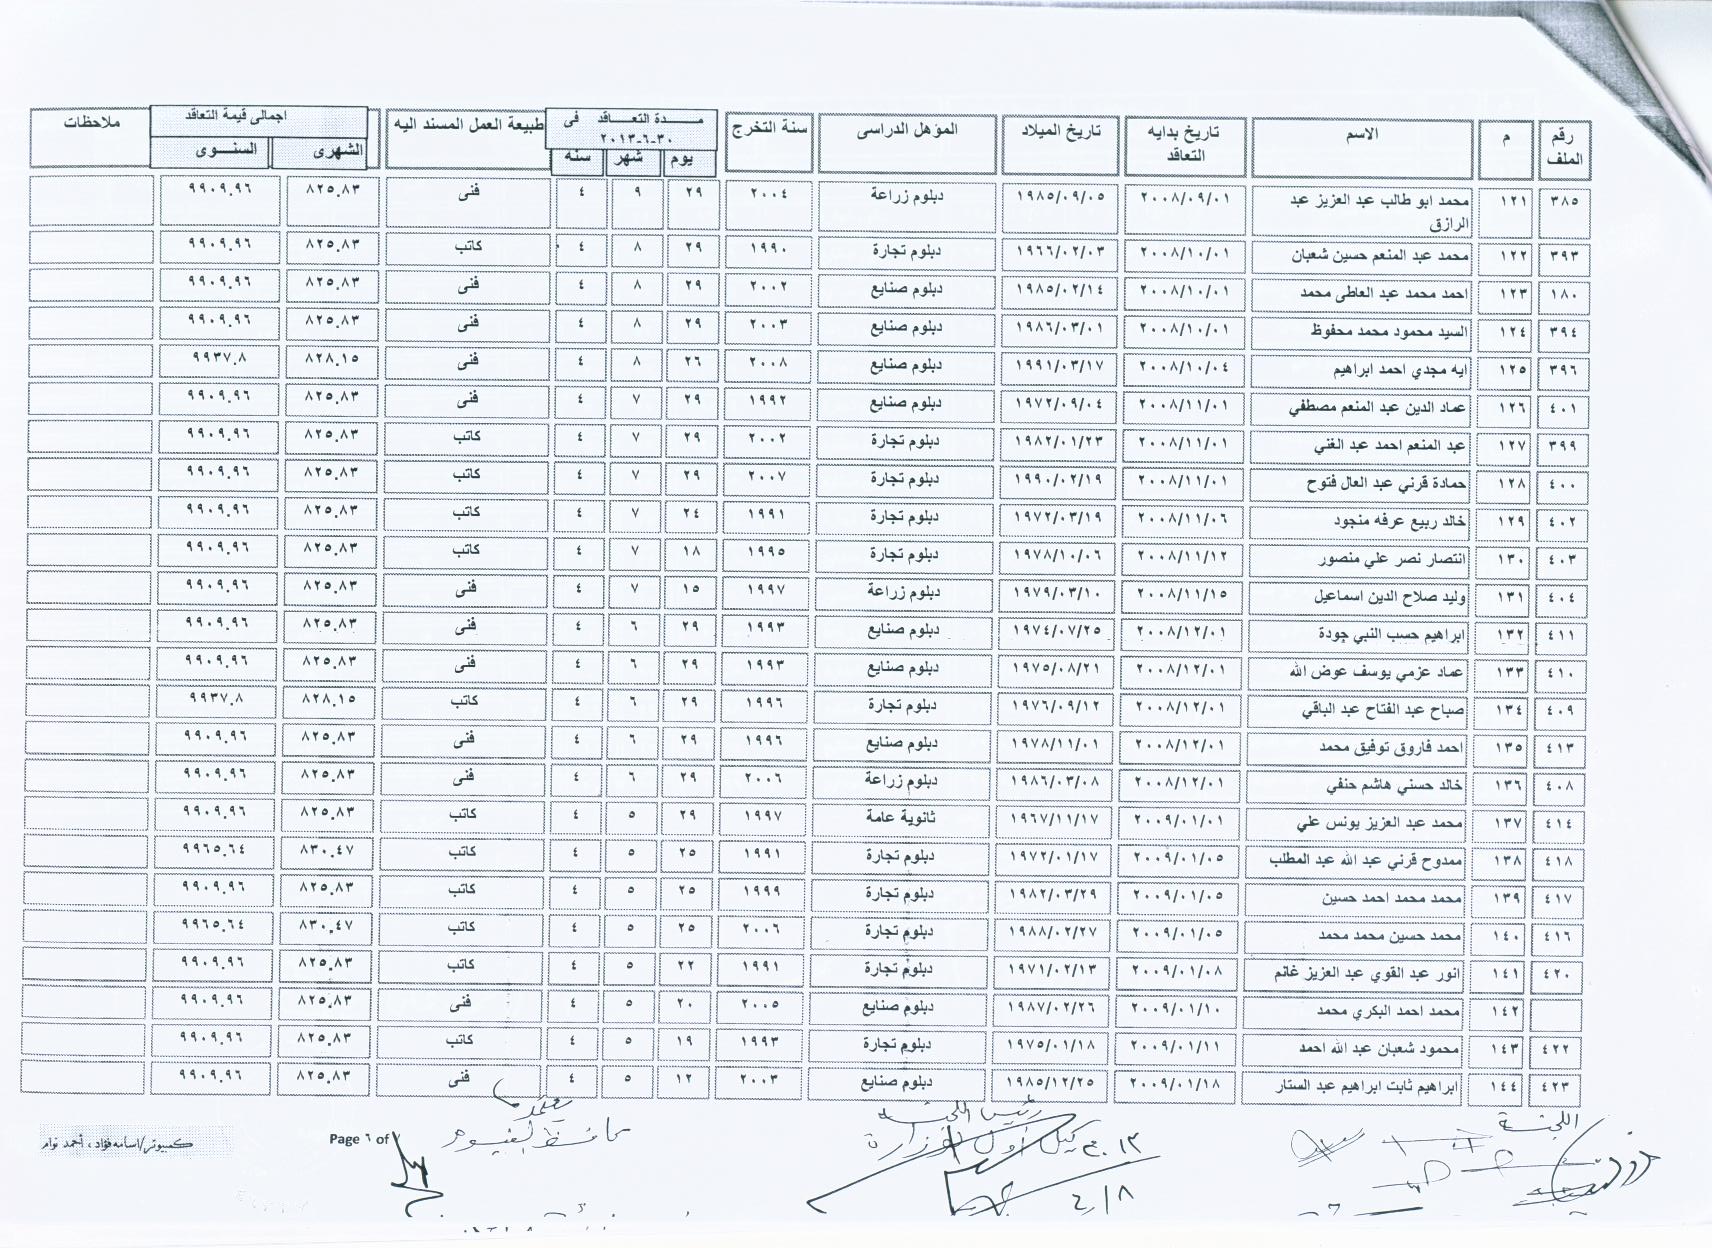 رقم الملف | م | الاسم | تاريخ بدايه التعاقد | تاريخ الميلاد | المؤهل الدراسى | سنة التخرج | مدة التعاقد فى ٣٠-٦-٢٠١٣ | طبيعة العمل المسند اليه | اجمالى قيمة التعاقد | ملاحظات
يوم | شهر | سنه | الشهرى | السنوى
٣٨٥ | ١٢١ | محمد ابو طالب عبد العزيز عبد الرازق | ٢٠٠٨/٠٩/٠١ | ١٩٨٥/٠٩/٠٥ | دبلوم زراعة | ٢٠٠٤ | ٢٩ | ٩ | ٤ | فنى | ٨٢٥.٨٣ | ٩٩٠٩.٩٦
٣٩٣ | ١٢٢ | محمد عبد المنعم حسين شعبان | ٢٠٠٨/١٠/٠١ | ١٩٦٦/٠٢/٠٣ | دبلوم تجارة | ١٩٩٠ | ٢٩ | ٨ | ٤ | كاتب | ٨٢٥.٨٣ | ٩٩٠٩.٩٦
١٨٠ | ١٢٣ | احمد محمد عبد العاطى محمد | ٢٠٠٨/١٠/٠١ | ١٩٨٥/٠٢/١٤ | دبلوم صنايع | ٢٠٠٢ | ٢٩ | ٨ | ٤ | فنى | ٨٢٥.٨٣ | ٩٩٠٩.٩٦
٣٩٤ | ١٢٤ | السيد محمود محمد محفوظ | ٢٠٠٨/١٠/٠١ | ١٩٨٦/٠٣/٠١ | دبلوم صنايع | ٢٠٠٣ | ٢٩ | ٨ | ٤ | فنى | ٨٢٥.٨٣ | ٩٩٠٩.٩٦
٣٩٦ | ١٢٥ | ايه مجدي احمد ابراهيم | ٢٠٠٨/١٠/٠٤ | ١٩٩١/٠٣/١٧ | دبلوم صنايع | ٢٠٠٨ | ٢٦ | ٨ | ٤ | فنى | ٨٢٨.١٥ | ٩٩٣٧.٨
٤٠١ | ١٢٦ | عماد الدين عبد المنعم مصطفي | ٢٠٠٨/١١/٠١ | ١٩٧٢/٠٩/٠٤ | دبلوم صنايع | ١٩٩٢ | ٢٩ | ٧ | ٤ | فنى | ٨٢٥.٨٣ | ٩٩٠٩.٩٦
٣٩٩ | ١٢٧ | عبد المنعم احمد عبد الغني | ٢٠٠٨/١١/٠١ | ١٩٨٢/٠١/٢٣ | دبلوم تجارة | ٢٠٠٢ | ٢٩ | ٧ | ٤ | كاتب | ٨٢٥.٨٣ | ٩٩٠٩.٩٦
٤٠٠ | ١٢٨ | حمادة قرني عبد العال فتوح | ٢٠٠٨/١١/٠١ | ١٩٩٠/٠٢/١٩ | دبلوم تجارة | ٢٠٠٧ | ٢٩ | ٧ | ٤ | كاتب | ٨٢٥.٨٣ | ٩٩٠٩.٩٦
٤٠٢ | ١٢٩ | خالد ربيع عرفه منجود | ٢٠٠٨/١١/٠٦ | ١٩٧٢/٠٣/١٩ | دبلوم تجارة | ١٩٩١ | ٢٤ | ٧ | ٤ | كاتب | ٨٢٥.٨٣ | ٩٩٠٩.٩٦
٤٠٣ | ١٣٠ | انتصار نصر علي منصور | ٢٠٠٨/١١/١٢ | ١٩٧٨/١٠/٠٦ | دبلوم تجارة | ١٩٩٥ | ١٨ | ٧ | ٤ | كاتب | ٨٢٥.٨٣ | ٩٩٠٩.٩٦
٤٠٤ | ١٣١ | وليد صلاح الدين اسماعيل | ٢٠٠٨/١١/١٥ | ١٩٧٩/٠٣/١٠ | دبلوم زراعة | ١٩٩٧ | ١٥ | ٧ | ٤ | فنى | ٨٢٥.٨٣ | ٩٩٠٩.٩٦
٤١١ | ١٣٢ | ابراهيم حسب النبي جودة | ٢٠٠٨/١٢/٠١ | ١٩٧٤/٠٧/٢٥ | دبلوم صنايع | ١٩٩٣ | ٢٩ | ٦ | ٤ | فنى | ٨٢٥.٨٣ | ٩٩٠٩.٩٦
٤١٠ | ١٣٣ | عماد عزمي يوسف عوض الله | ٢٠٠٨/١٢/٠١ | ١٩٧٥/٠٨/٢١ | دبلوم صنايع | ١٩٩٣ | ٢٩ | ٦ | ٤ | فنى | ٨٢٥.٨٣ | ٩٩٠٩.٩٦
٤٠٩ | ١٣٤ | صباح عبد الفتاح عبد الباقي | ٢٠٠٨/١٢/٠١ | ١٩٧٦/٠٩/١٢ | دبلوم تجارة | ١٩٩٦ | ٢٩ | ٦ | ٤ | كاتب | ٨٢٨.١٥ | ٩٩٣٧.٨
٤١٣ | ١٣٥ | احمد فاروق توفيق محمد | ٢٠٠٨/١٢/٠١ | ١٩٧٨/١١/٠١ | دبلوم صنايع | ١٩٩٦ | ٢٩ | ٦ | ٤ | فنى | ٨٢٥.٨٣ | ٩٩٠٩.٩٦
٤٠٨ | ١٣٦ | خالد حسني هاشم حنفي | ٢٠٠٨/١٢/٠١ | ١٩٨٦/٠٣/٠٨ | دبلوم زراعة | ٢٠٠٦ | ٢٩ | ٦ | ٤ | فنى | ٨٢٥.٨٣ | ٩٩٠٩.٩٦
٤١٤ | ١٣٧ | محمد عبد العزيز يونس علي | ٢٠٠٩/٠١/٠١ | ١٩٦٧/١١/١٧ | ثانوية عامة | ١٩٩٧ | ٢٩ | ٥ | ٤ | كاتب | ٨٢٥.٨٣ | ٩٩٠٩.٩٦
٤١٨ | ١٣٨ | ممدوح قرني عبد الله عبد المطلب | ٢٠٠٩/٠١/٠٥ | ١٩٧٢/٠١/١٧ | دبلوم تجارة | ١٩٩١ | ٢٥ | ٥ | ٤ | كاتب | ٨٣٠.٤٧ | ٩٩٦٥.٦٤
٤١٧ | ١٣٩ | محمد محمد احمد حسين | ٢٠٠٩/٠١/٠٥ | ١٩٨٢/٠٣/٢٩ | دبلوم تجارة | ١٩٩٩ | ٢٥ | ٥ | ٤ | كاتب | ٨٢٥.٨٣ | ٩٩٠٩.٩٦
٤١٦ | ١٤٠ | محمد حسين محمد محمد | ٢٠٠٩/٠١/٠٥ | ١٩٨٨/٠٢/٢٧ | دبلوم تجارة | ٢٠٠٦ | ٢٥ | ٥ | ٤ | كاتب | ٨٣٠.٤٧ | ٩٩٦٥.٦٤
٤٢٠ | ١٤١ | انور عبد القوي عبد العزيز غانم | ٢٠٠٩/٠١/٠٨ | ١٩٧١/٠٢/١٣ | دبلوم تجارة | ١٩٩١ | ٢٢ | ٥ | ٤ | كاتب | ٨٢٥.٨٣ | ٩٩٠٩.٩٦
١٤٢ | محمد احمد البكري محمد | ٢٠٠٩/٠١/١٠ | ١٩٨٧/٠٢/٢٦ | دبلوم صنايع | ٢٠٠٥ | ٢٠ | ٥ | ٤ | فنى | ٨٢٥.٨٣ | ٩٩٠٩.٩٦
٤٢٢ | ١٤٣ | محمود شعبان عبد الله احمد | ٢٠٠٩/٠١/١١ | ١٩٧٥/٠١/١٨ | دبلوم تجارة | ١٩٩٣ | ١٩ | ٥ | ٤ | كاتب | ٨٢٥.٨٣ | ٩٩٠٩.٩٦
٤٢٣ | ١٤٤ | ابراهيم ثابت ابراهيم عبد الستار | ٢٠٠٩/٠١/١٨ | ١٩٨٥/١٢/٢٥ | دبلوم صنايع | ٢٠٠٣ | ١٢ | ٥ | ٤ | فنى | ٨٢٥.٨٣ | ٩٩٠٩.٩٦
اللجنة
رئيس اللجنة
وكيل أول الوزارة
يعتمد
محافظ الفيوم
Page ٦ of
كمبيوتر/اسامه فؤاد ، أحمد نوام